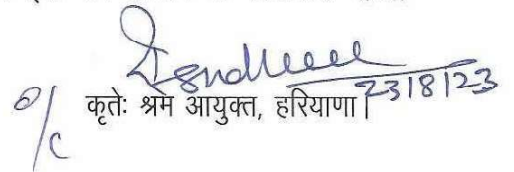 23/8/23
o/c कृतेः श्रम आयुक्त, हरियाणा।